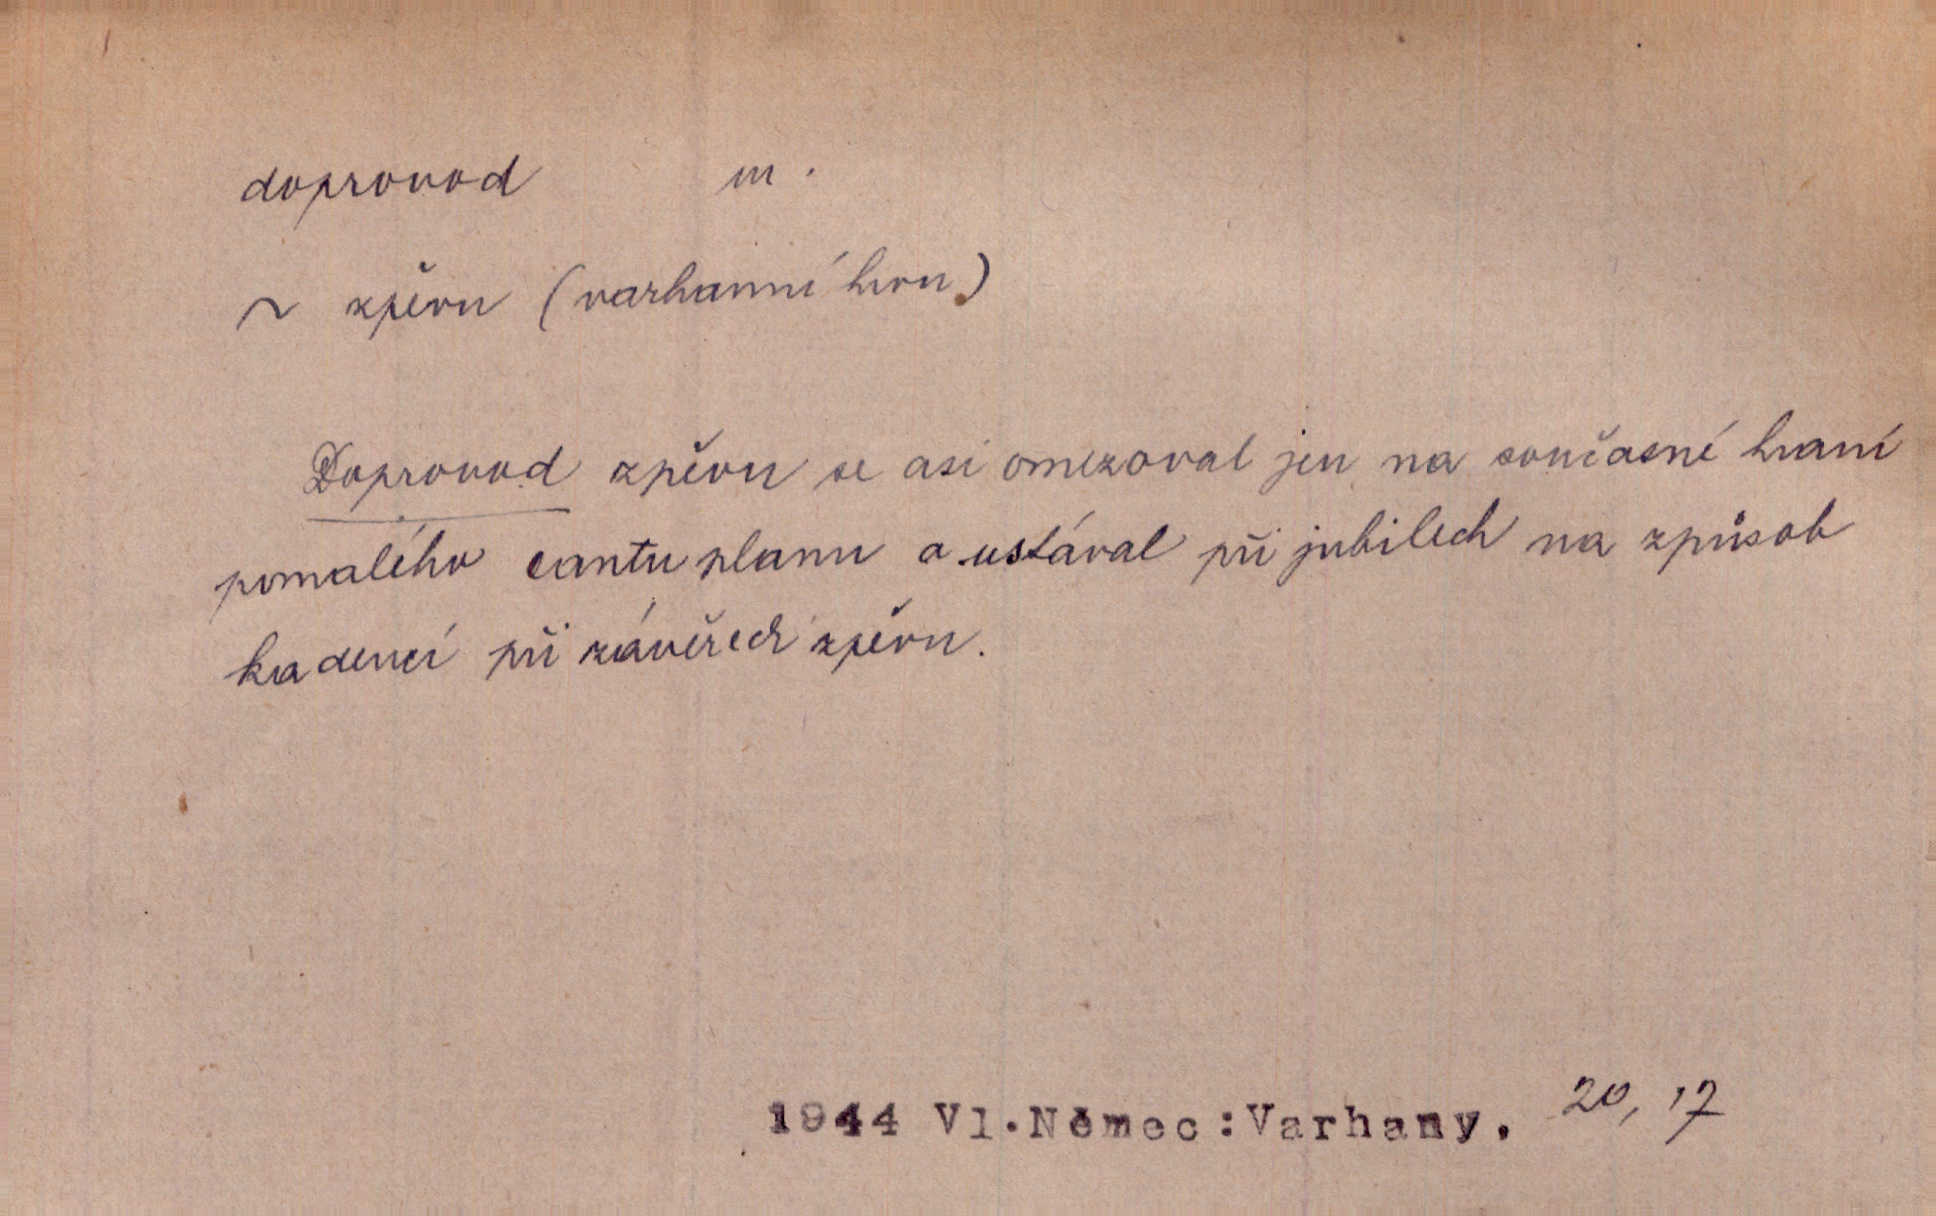 doprovod m.
~ zpěvu (varhanní hrou)
Doprovod zpěvu se asi omezoval jen na současné hraní
pomalého cantu planu a ustával při jubilech na způsob
kadencí při závěrech zpěvu.
1944 Vl.Němec:Varhany. 20, 17